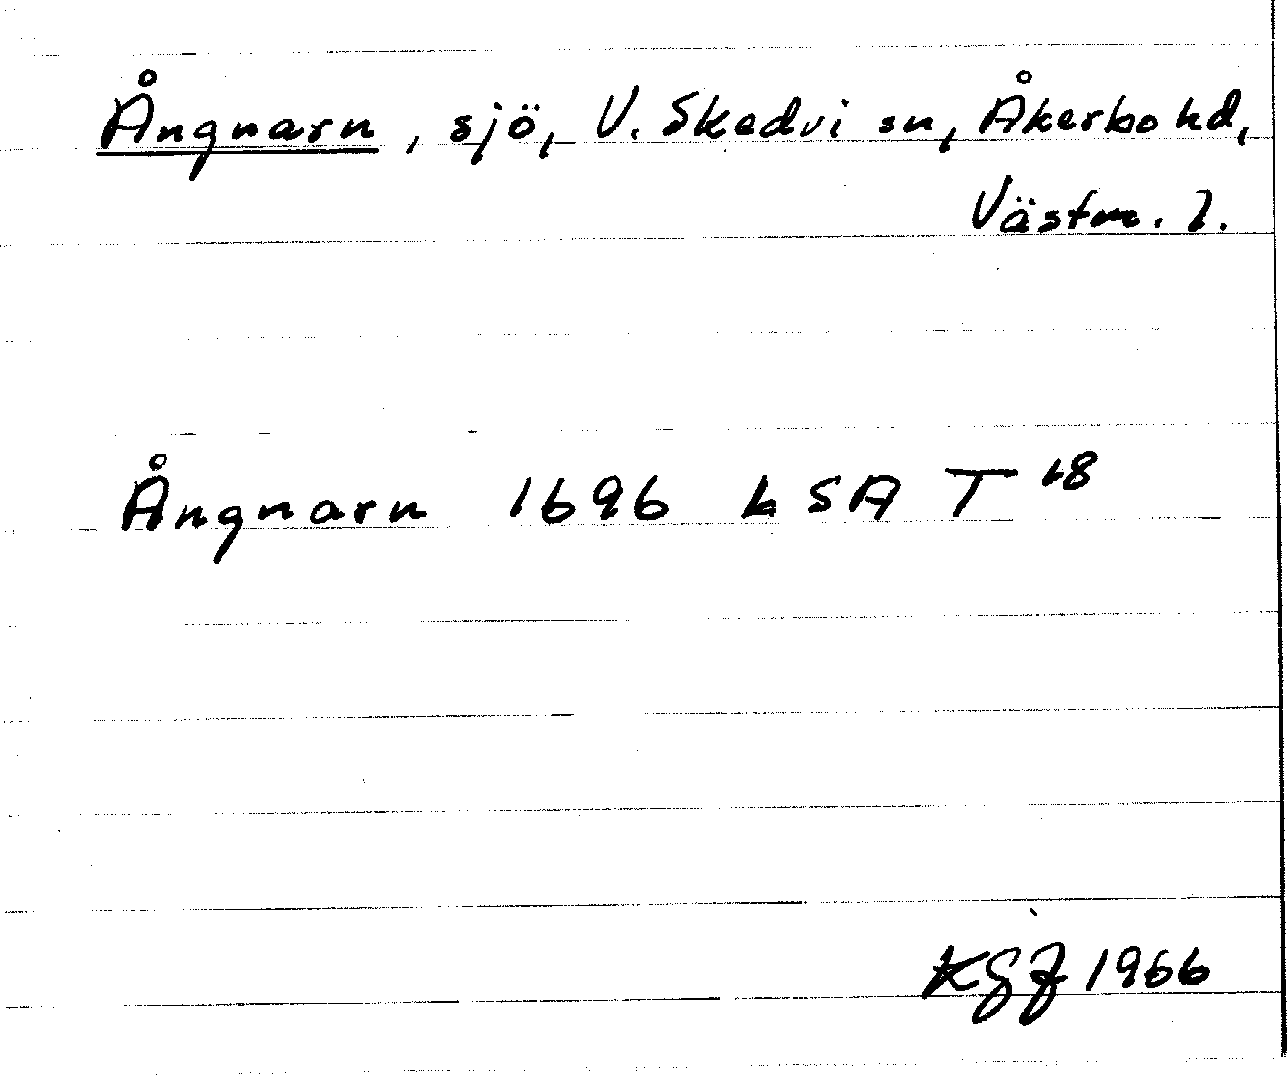 Ångnarn, sjö, V. Skedvi sn, Åkerbo hd,
Västm. l.
Ångnarn 1696 LSA T 68
1966